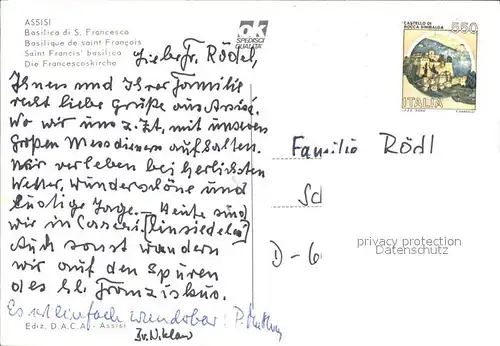 ASSISI
Basilica di S. Francesco
Basilique de saint François
Saint Francis' basilica
Die Francescoskirche
OK SPEDISCI QUALITÀ
CASTELLO DI ROCCA SINIBALDA
550
ITALIA
Lieber Fr. Rödel,
Ihnen und Ihrer Familie
recht liebe Grüße aus Assisi.
Wo wir uns z. Zt. mit unseren
großen Messdienern aufhalten.
Wir verleben bei herrlichstem
Wetter, wunderschöne und
lustige Tage. Heute sind
wir in Carceri (Einsiedelei)
Auch sonst wandern
wir auf den Spuren
des hl. Franziskus.
Es ist einfach wunderbar! P.
Ediz. D.A.C.A. - Assisi
Familie Rödl
Sd
D-6
privacy protection
Datenschutz